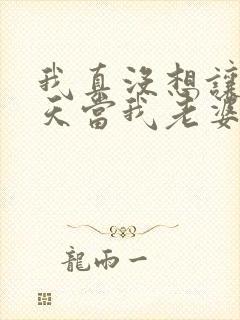 我真沒想讓
天當我老婆
龍兩一